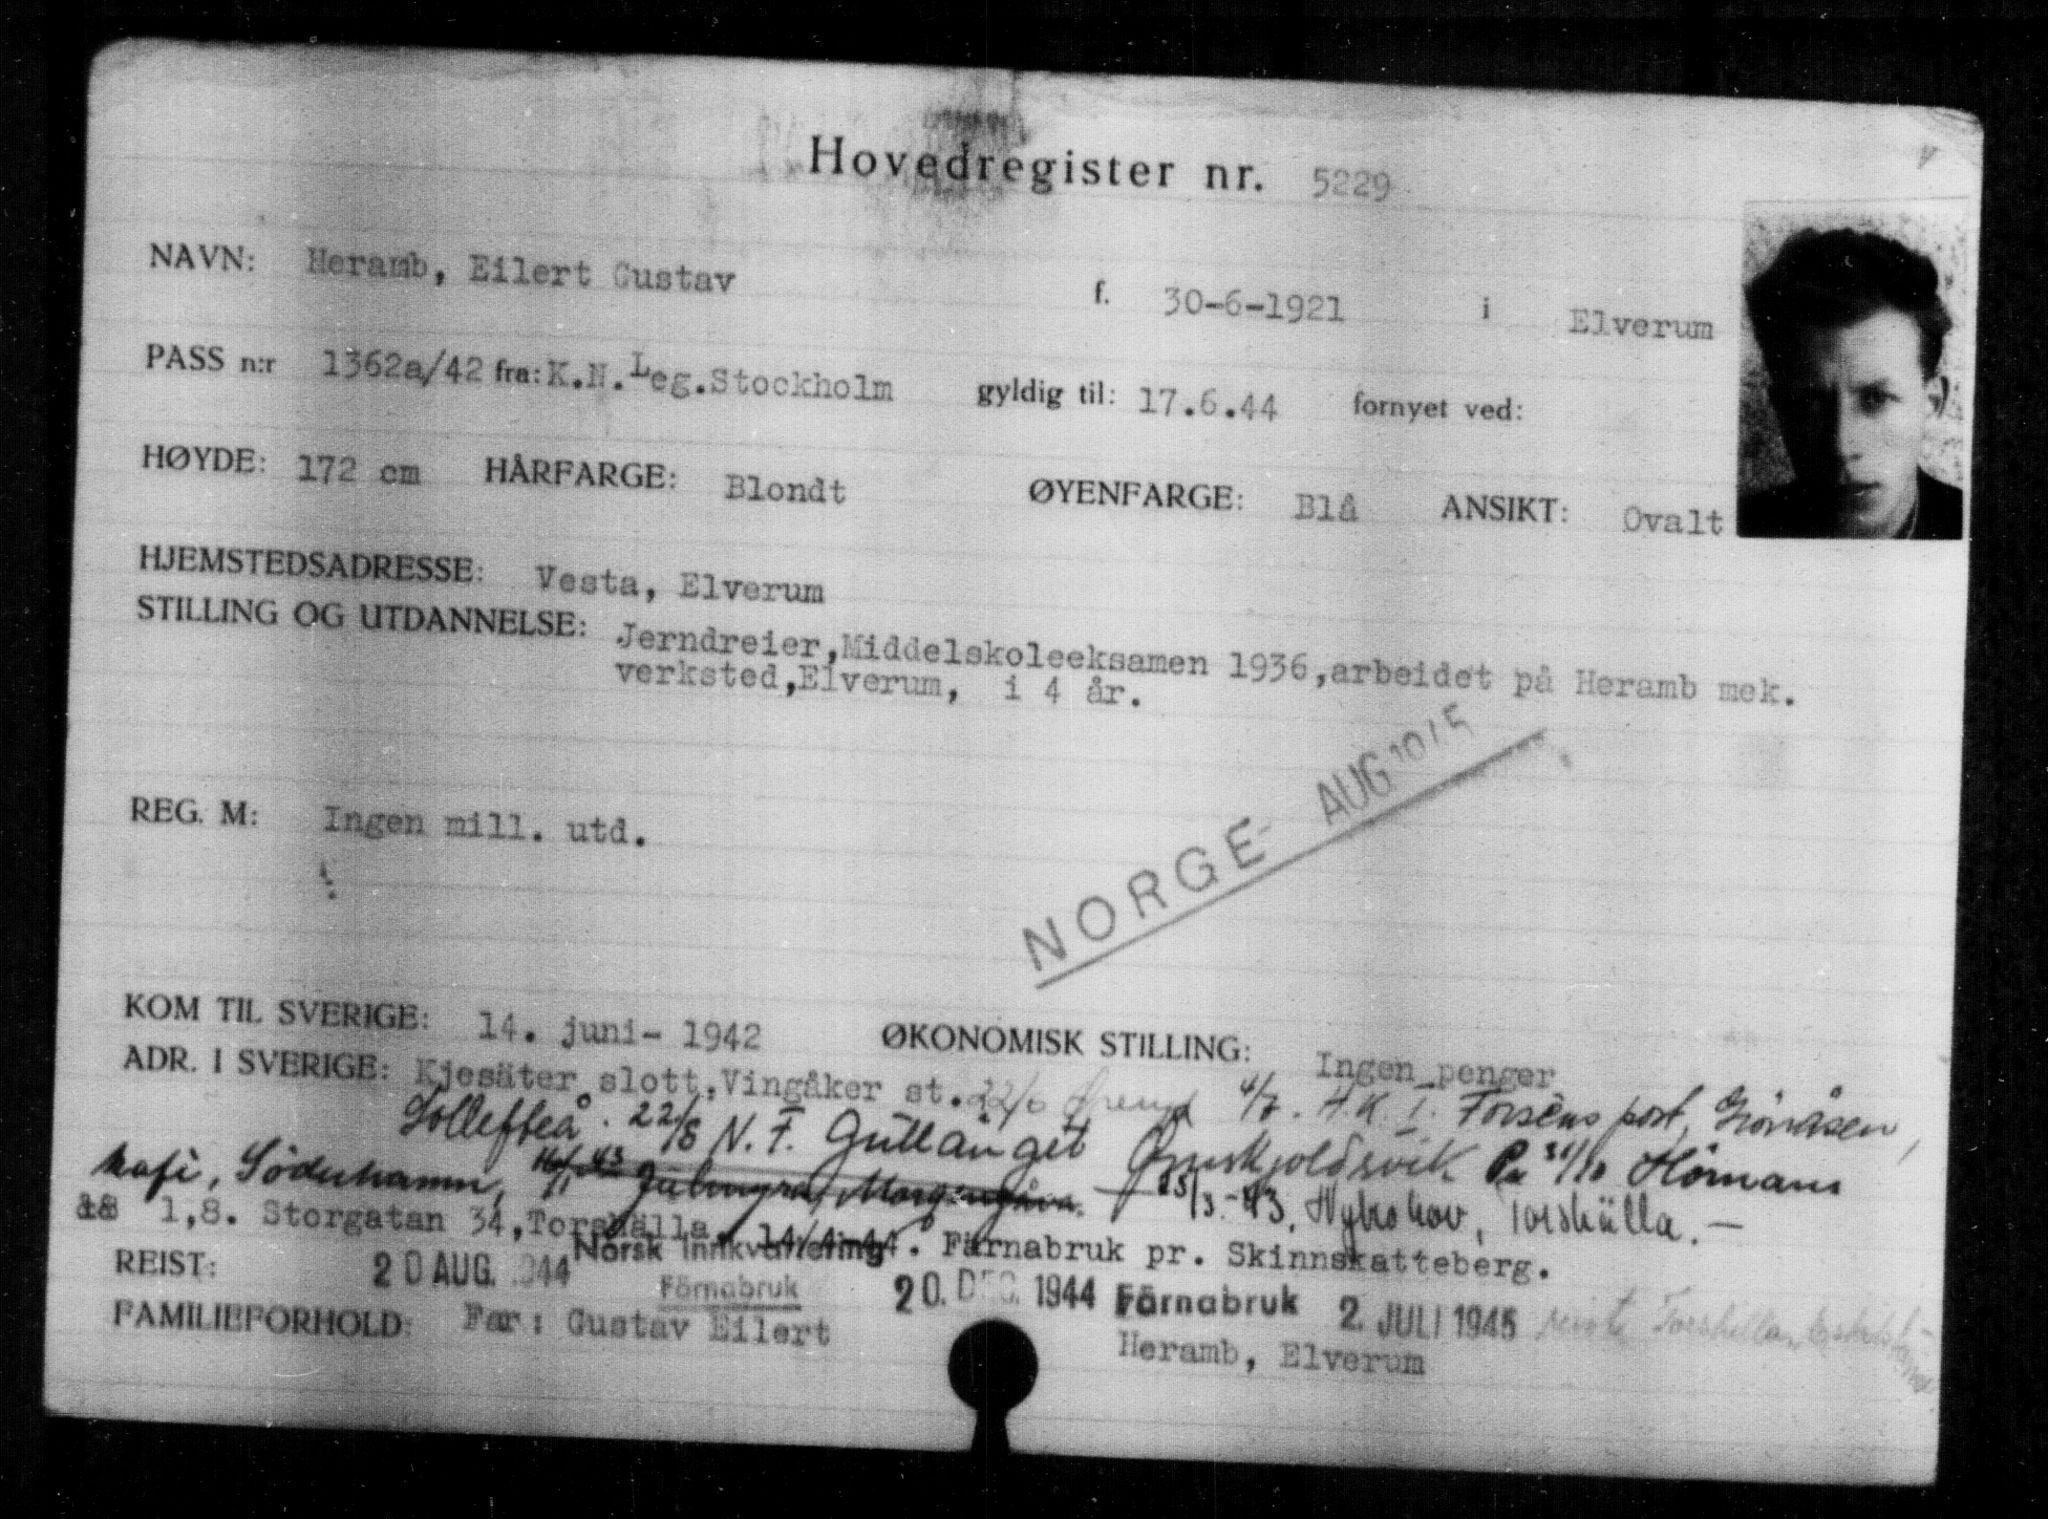 Hovedregister nr. 5229
NAVN: Heramb, Eilert Gustav f. 30-6-1921 i Elverum
PASS n:r 1362a/42 fra: K.N.Leg.Stockholm gyldig til: 17.6.44 fornyet ved:
HØYDE: 172 cm HÅRFARGE: Blondt ØYENFARGE: Blå ANSIKT: Ovalt
HJEMSTEDSADRESSE: Vesta, Elverum
STILLING OG UTDANNELSE: Jerndreier,Middelskoleeksamen 1936,arbeidet på Heramb mek.
verksted,Elverum, i 4 år.
NORGE AUG 1945
REG. M: Ingen mill. utd.
KOM TIL SVERIGE: 14. juni- 1942 ØKONOMISK STILLING: Ingen penger
ADR. I SVERIGE: Kjesäter slott,Vingåker st. 22/6 4/7. A.K.I. Forsens post, Grönåsen,
Sollefteå. 22/8 N.F. Gullänget Örnskjoldsvik Pa 31/10 Hörnans
kafé, Söderhamn, 16/1 43 13/3-43. Nybohov, Torshälla.-
1,8. Storgatan 34,Torshälla. 14/4-44. Färnabruk pr. Skinnskatteberg.
Norsk innkvartering
REIST: 20 AUG. 1944 Färnabruk 20. DEC. 1944 Färnabruk 2. JULI 1945 reiste Torshälla, Eskilstuna
FAMILIEFORHOLD: Far: Gustav Eilert Heramb, Elverum